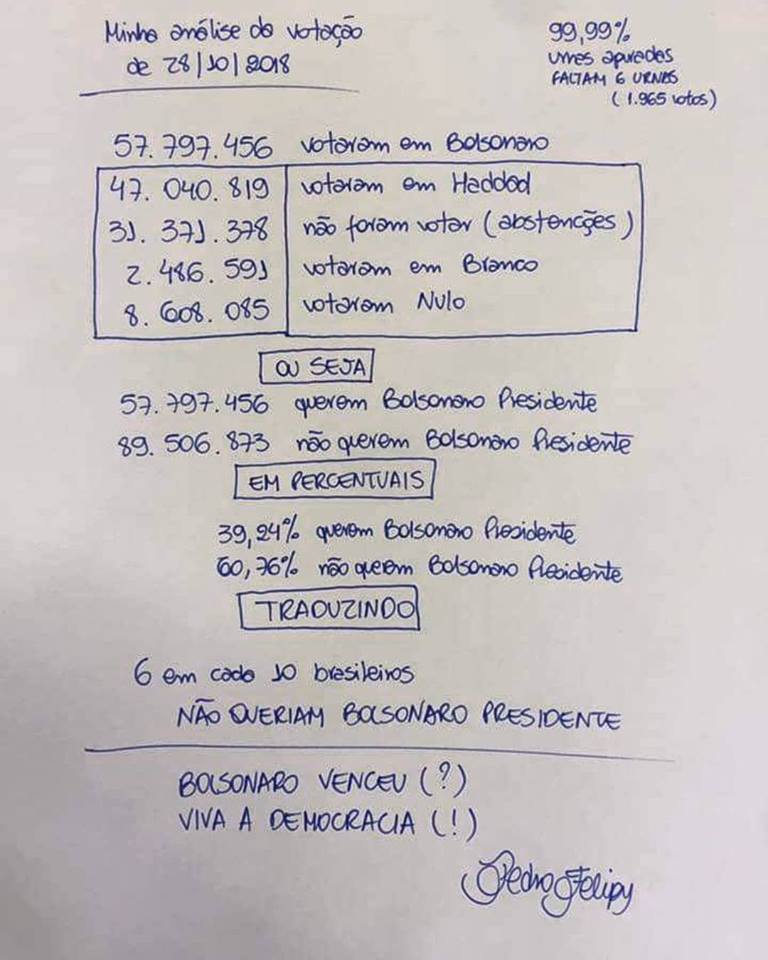 Minha análise da votação
de 28/10/2018
99,99%
urnas apuradas
FALTAM 6 URNAS
(1.965 votos)
57.797.456 votaram em Bolsonaro
47.040.819 votaram em Haddad
31.371.378 não foram votar (abstenções)
2.486.591 votaram em Branco
8.608.085 votaram Nulo
OU SEJA
57.797.456 querem Bolsonaro Presidente
89.506.873 não querem Bolsonaro Presidente
EM PERCENTUAIS
39,24% querem Bolsonaro Presidente
60,76% não querem Bolsonaro Presidente
TRADUZINDO
6 em cada 10 brasileiros
NÃO QUERIAM BOLSONARO PRESIDENTE
BOLSONARO VENCEU (?)
VIVA A DEMOCRACIA (!)
Pedro Felipy